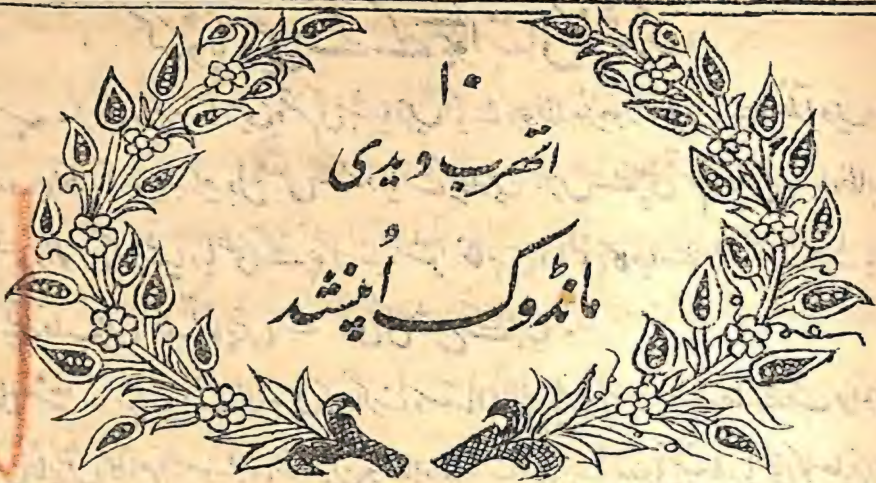 ۱۰
اتھرب ویدی
مانڈوک اُپنشد